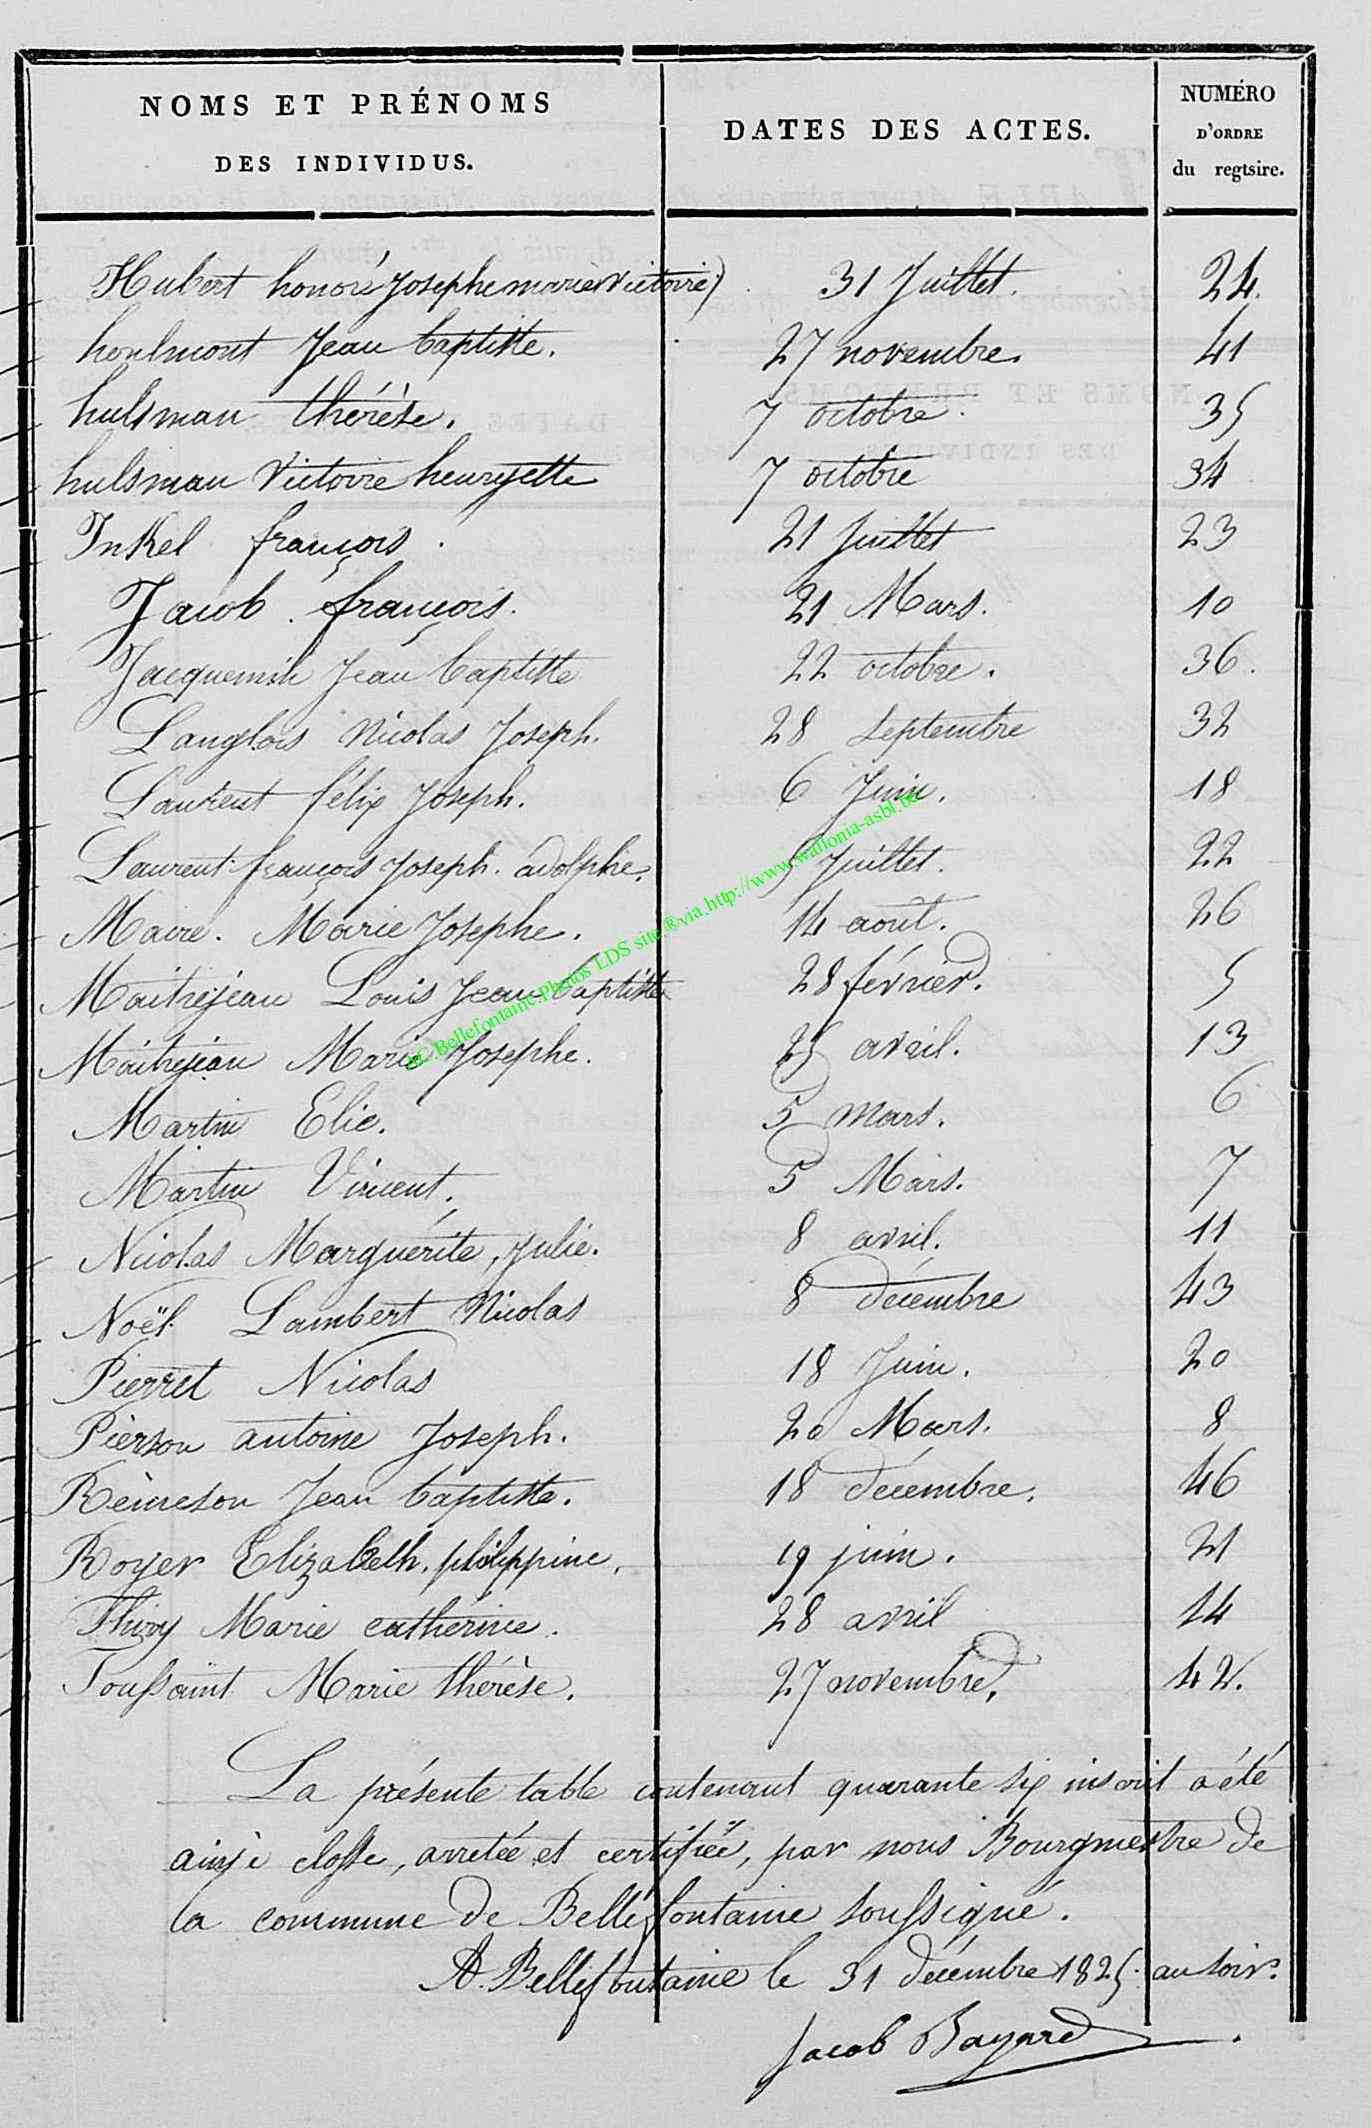 NOMS ET PRÉNOMS
DES INDIVIDUS.
DATES DES ACTES.
NUMÉRO
D'ORDRE
du regtsire.
Hubert honoré Josephe marie victoire) 31 Juillet. 24.
houlmont Jean baptiste. 27 novembre. 41
hulsman thérèse. 7 octobre. 35
hulsman Victoire henryette 7 octobre 34
Inkel françois. 21 Juillet 23
Jacob. françois. 21 Mars. 10
Jacquemin Jean baptiste 22 octobre. 36.
Langlois Nicolas Joseph. 28 septembre 32
Laurent félix Joseph. 6 Juin. 18
Laurent françois Joseph. adolphe. 5 Juillet. 22
Maire. Marie Josephe. 14 août. 26
Maitrejean Louis Jean baptiste 28 février. 5
Maitrejean Marie Josephe. 25 avril. 13
Martin Elie. 5 mars. 6
Martin Vincent. 5 Mars. 7
Nicolas Marguérite, Julie. 8 avril. 11
Noël Lambert Nicolas 8 décembre 43
Pierret Nicolas 18 Juin. 20
Pierson antoine Joseph. 20 Mars. 8
Rèmeson Jean baptiste. 18 décembre. 46
Royer Elizabelh. philippine. 19 juin. 21
Thiry Marie catherine. 28 avril 14
Toussaint Marie thérèse. 27 novembre. 42.
La présente table contenant quarante six inscrit a été
ainsi closse, arretée et certifiée, par nous Bourgmestre de
la commune de Bellefontaine soussigné.
A. Bellefontaine le 31 décembre 1825. au soir.
Jacob Bayard
AC Bellefontaine.Photos LDS site.®via.http://www.wallonia-asbl.be